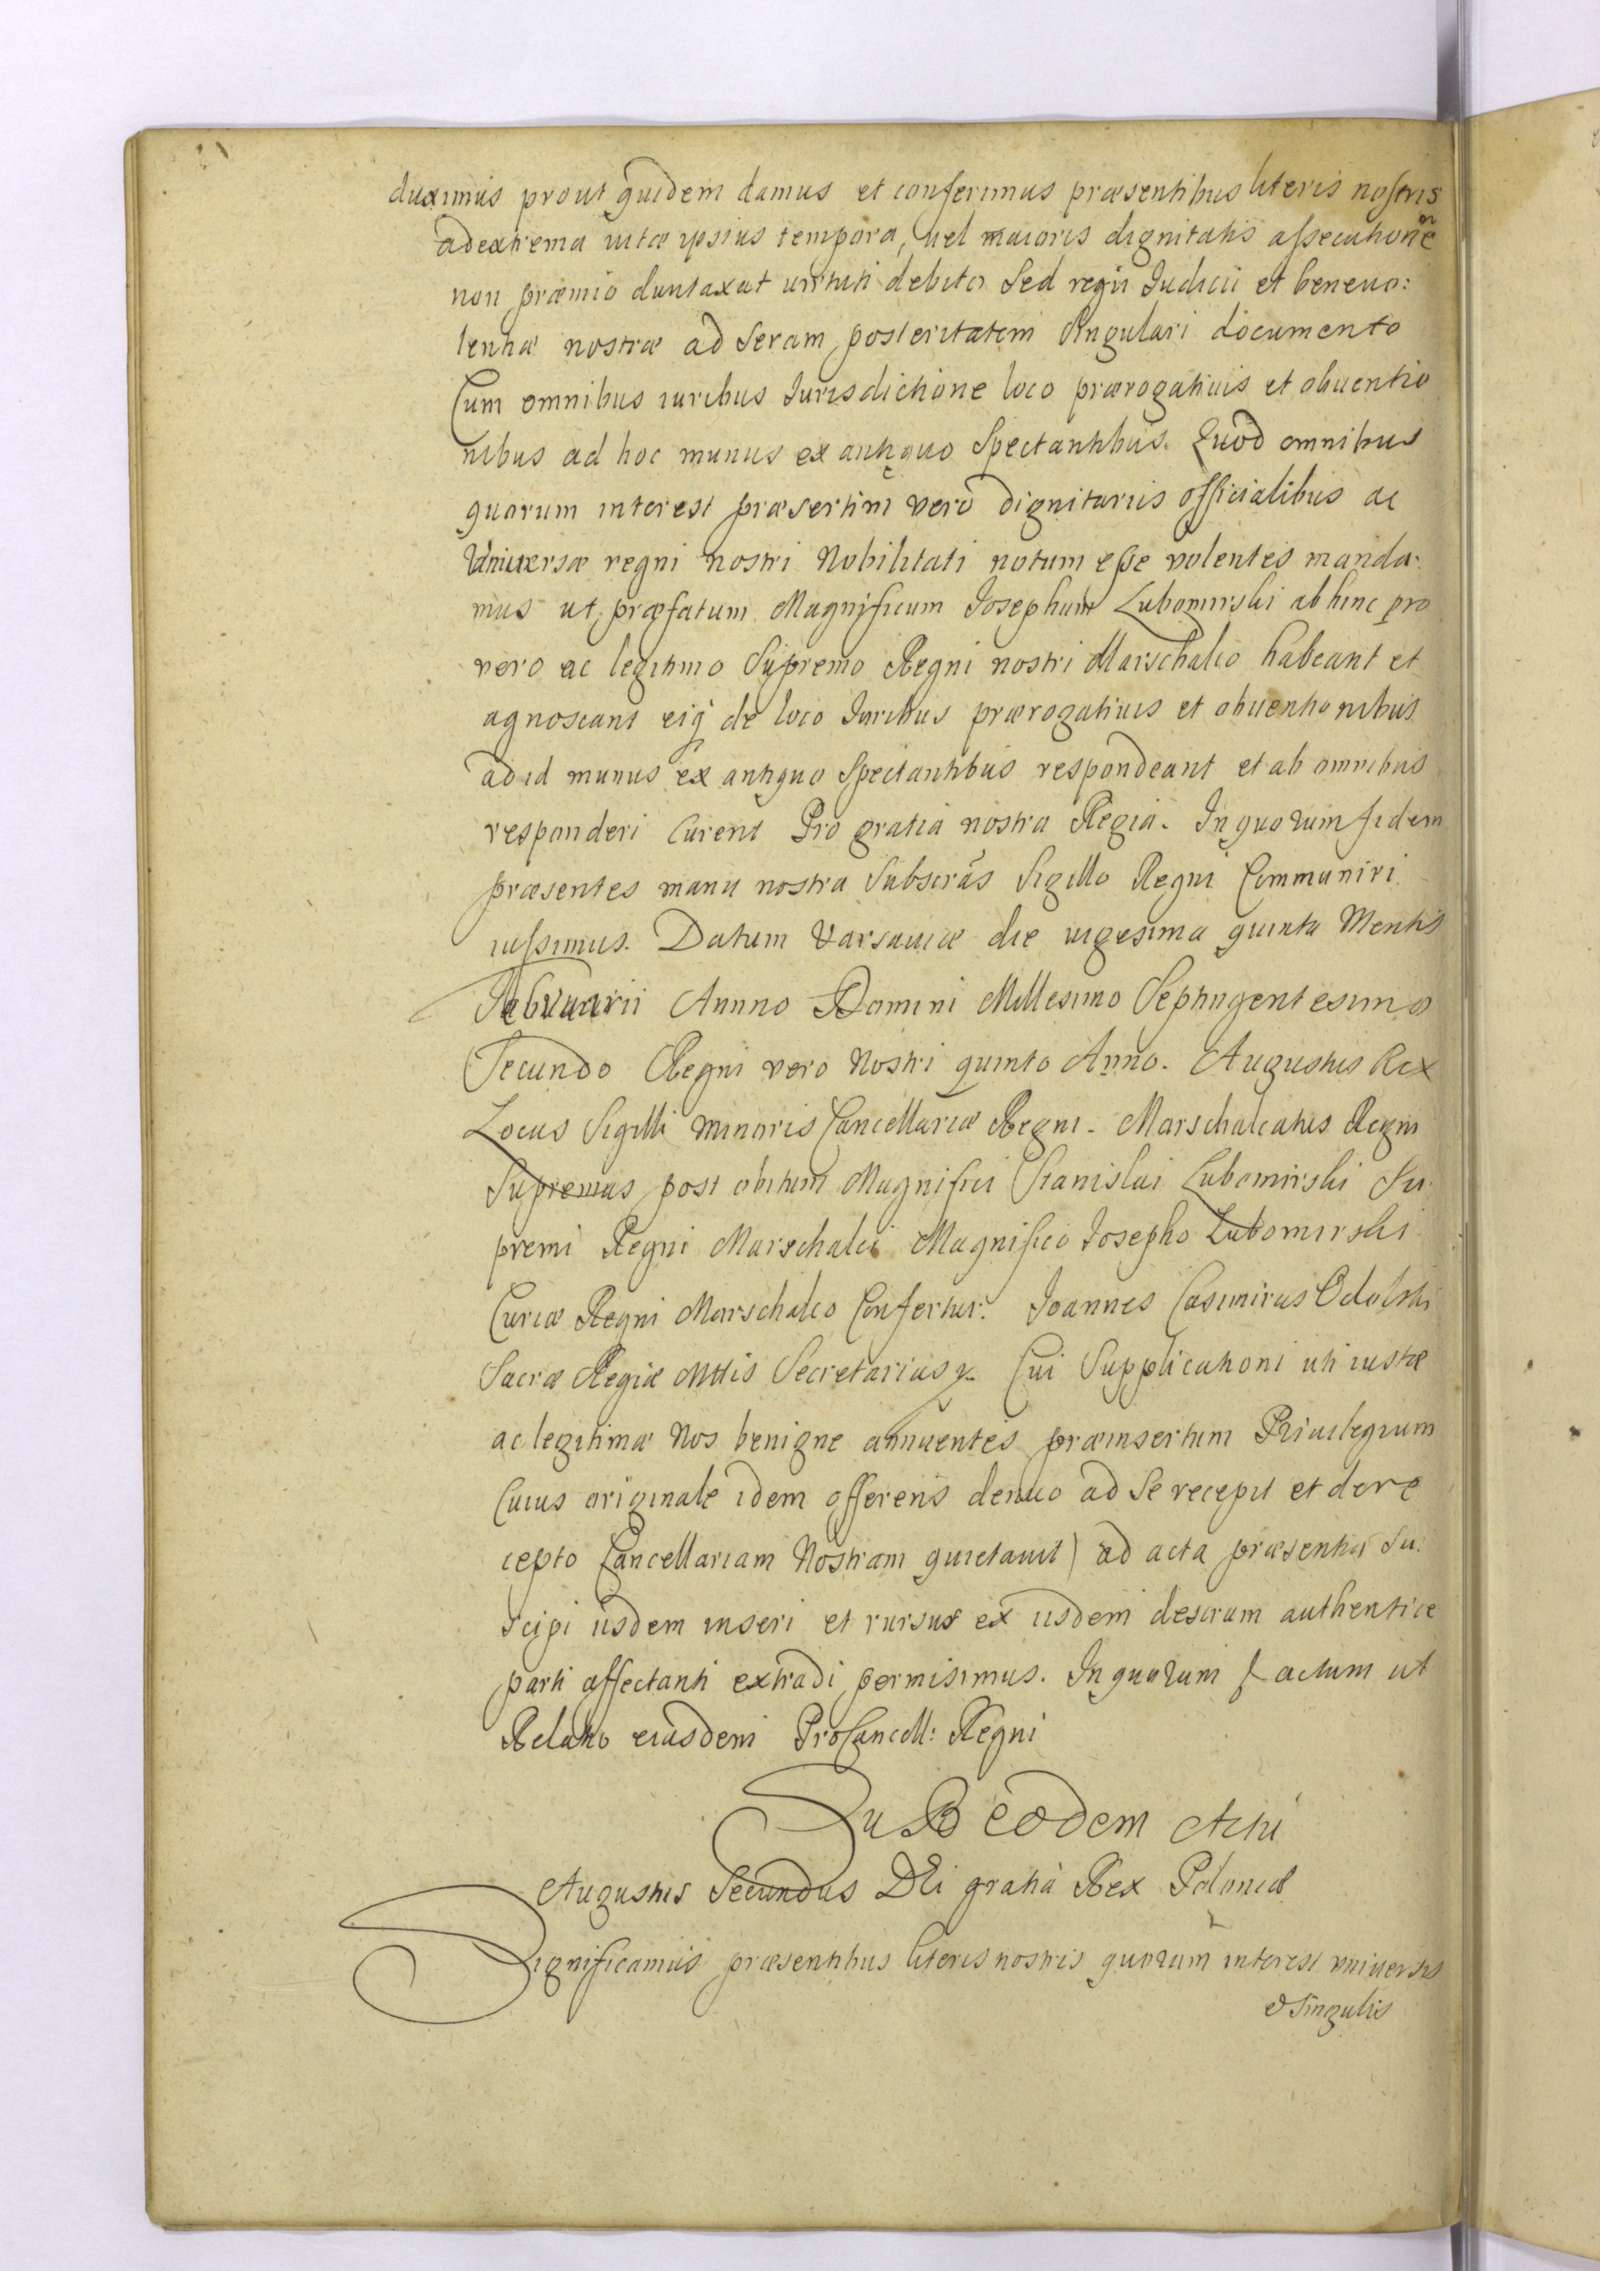 duximus prout quidem damus et conferimus præsentibus literis nostris
ad extrema vitæ ipsius tempora, vel maioris dignitatis assecutionem
non præmio duntaxat virtuti debito Sed regii Iudicii et beneuo:
lentiæ nostræ ad Seram posteritatem Singulari documento
Cum omnibus iuribus Iurisdictione loco prærogatiuis et obuentio
nibus ad hoc munus ex antiquo Spectantibus. Quod omnibus
quorum interest præsertim vero dignitariis officialibus ac
Vniuersæ regni nostri Nobilitati notum esse volentes manda:
mus ut præfatum Magnificum Josephum Lubomirski ab hinc pro
vero ac legitimo Supremo Regni nostri Marschalco habeant et
agnoscant eiq̃ de loco Iuribus prærogatiuis et obuentionibus
ad id munus ex antiquo Spectantibus respondeant et ab omnibus
responderi Curent Pro gratia nostra Regia. In quorum fidem
præsentes manu nostra Subscrãs Sigillo Regni Communiri
iussimus. Datum Varsauiæ die vigesima quinta Mensis
Februarii Annno Domini Millesimo Septingentesimo
Secundo Regni vero Nostri quinto Anno. Augustus Rex
Locus Sigilli Minoris Cancellariæ Regni. Marschalcatus Regni
Supremus post obitum Magnifici Stanislai Lubomirski Su
premi Regni Marschalci Magnifico Josepho Lubomirski
Curiæ Regni Marschalco Confertur. Joannes Casimirus
Sacræ Regiæ Mttis Secretarius Cui Supplicationi uti iustæ
ac legitimæ Nos benigne annuentes præinsertum Priuilegium
Cuius originale idem offerens denuo ad Se recepit et de re
cepto Cancellariam Nostram quietauit) ad acta præsentia Su:
scipi iisdem inseri et rursus ex iisdem descrium authentice
parti affectanti extradi permisimus. In quorum f actum ut
Relatio eiusdem ProCancell: Regni
SuB eodem Actu
Augustus Secundus DEi gratia Rex Poloniæ
Significamus præsentibus literis nostris quorum interest vniuersis
& Singulis